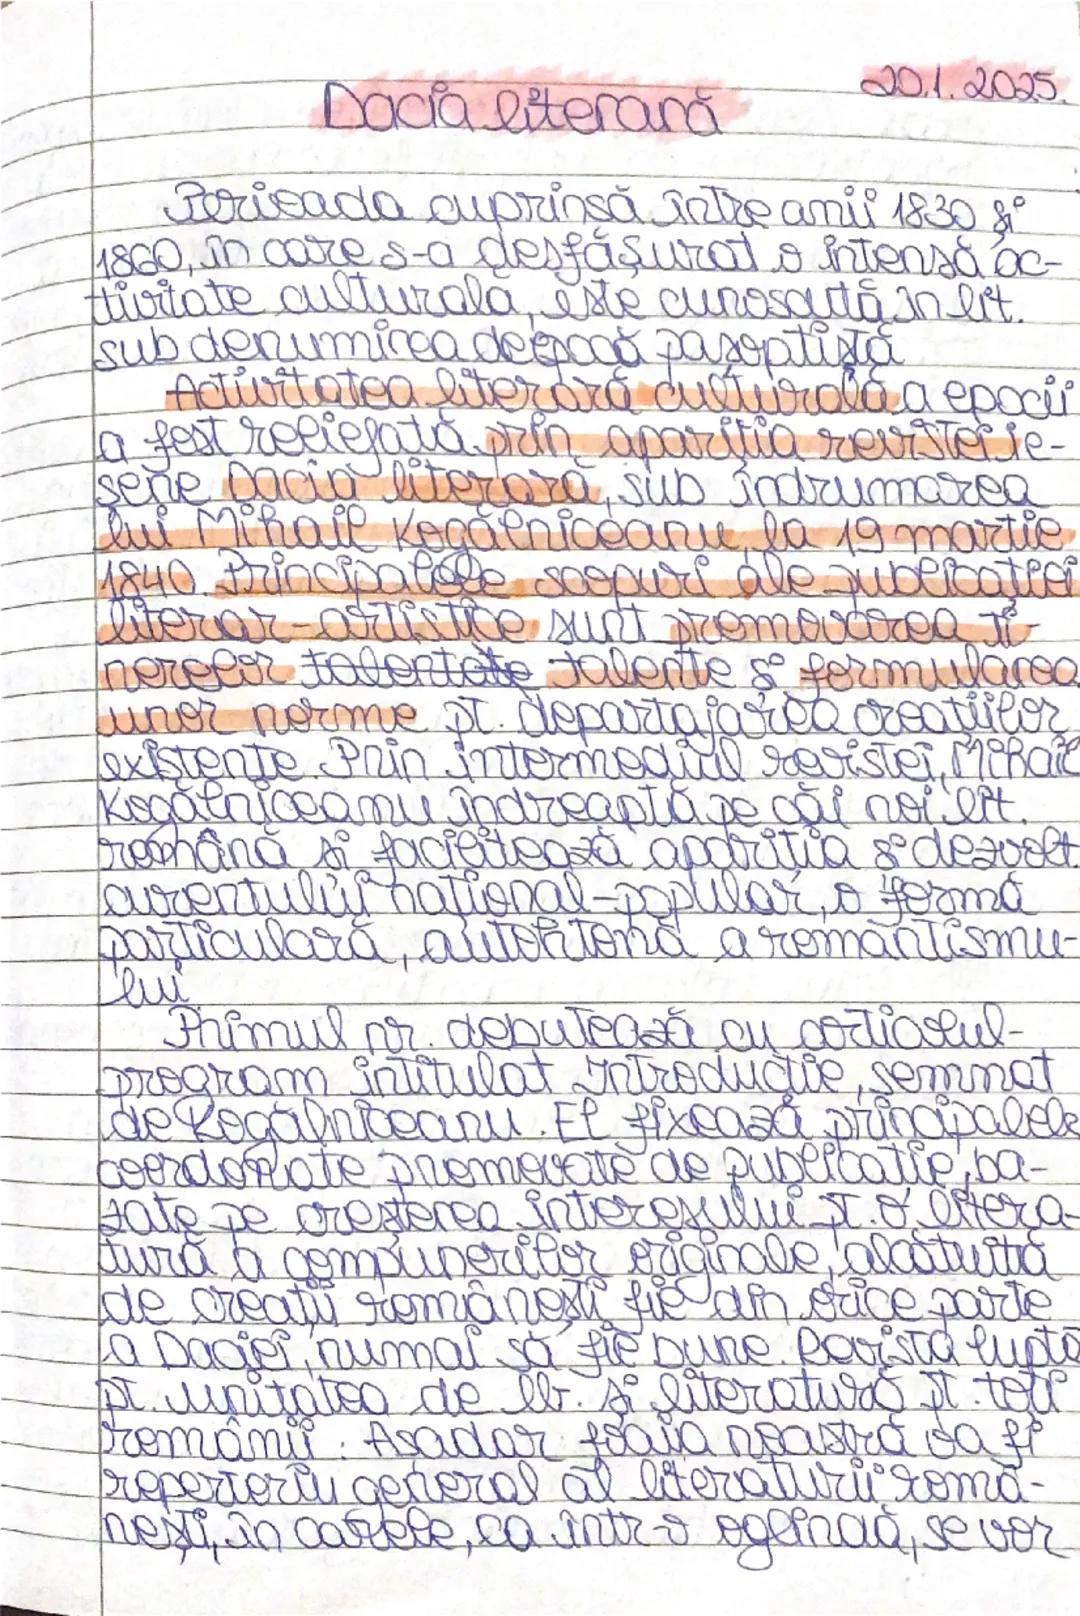 20.1.2025.
Dacia literară
Perioada cuprinsă între anii 1830 și
1860, în care s-a desfășurat o intensă ac-
tivitate culturală, este cunoscută în lit.
sub denumirea de epocă pașoptistă
Activitatea literară culturală a epocii
a fost reliefată prin apariția revistei ie-
șene Dacia literară, sub îndrumarea
lui Mihail Kogălniceanu, la 19 martie
1840. Principalele scopuri ale publicației
literar-artistice sunt promovarea ti-
nerelor talentate talente și formularea
unor norme pt. departajarea creațiilor
existente. Prin intermediul revistei, Mihail
Kogălniceanu îndreaptă pe căi noi lit.
română și facilitează apariția și dezvolt.
curentului național-popular, o formă
particulară, autohtonă a romantismu-
lui
Primul nr. debutează cu articolul-
program intitulat Introducție, semnat
de Kogălniceanu. El fixează principalele
coordonate promovate de publicație, ba-
zate pe creșterea interesului pt. o litera-
tură a compunerilor originale, alcătuită
de creații românești fie din orice parte
a Daciei, numai să fie bune. Revista luptă
pt. unitatea de lb. și literatură pt. toți
românii. Așadar foaia noastră va fi
repertoriu general al literaturii româ-
nești, în carele, ca într-o oglindă, se vor